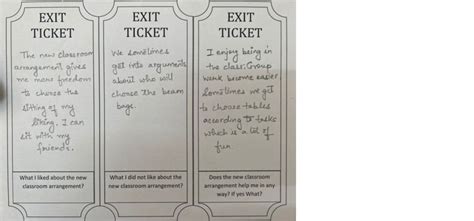 EXIT
TICKET
The new classroom
arrangement gives
me more freedom
to choose the
sitting of my
liking. I can
sit with my
friends.
What I liked about the new
classroom arrangement?
EXIT
TICKET
We sometimes
get into arguments
about who will
choose the beam
bags.
What I did not like about the
new classroom arrangement?
EXIT
TICKET
I enjoy being in
the class. Group
work become easier
Sometimes we get
to choose tables
according to tasks
which is a lot of
fun.
Does the new classroom
arrangement help me in any
way? If yes What?